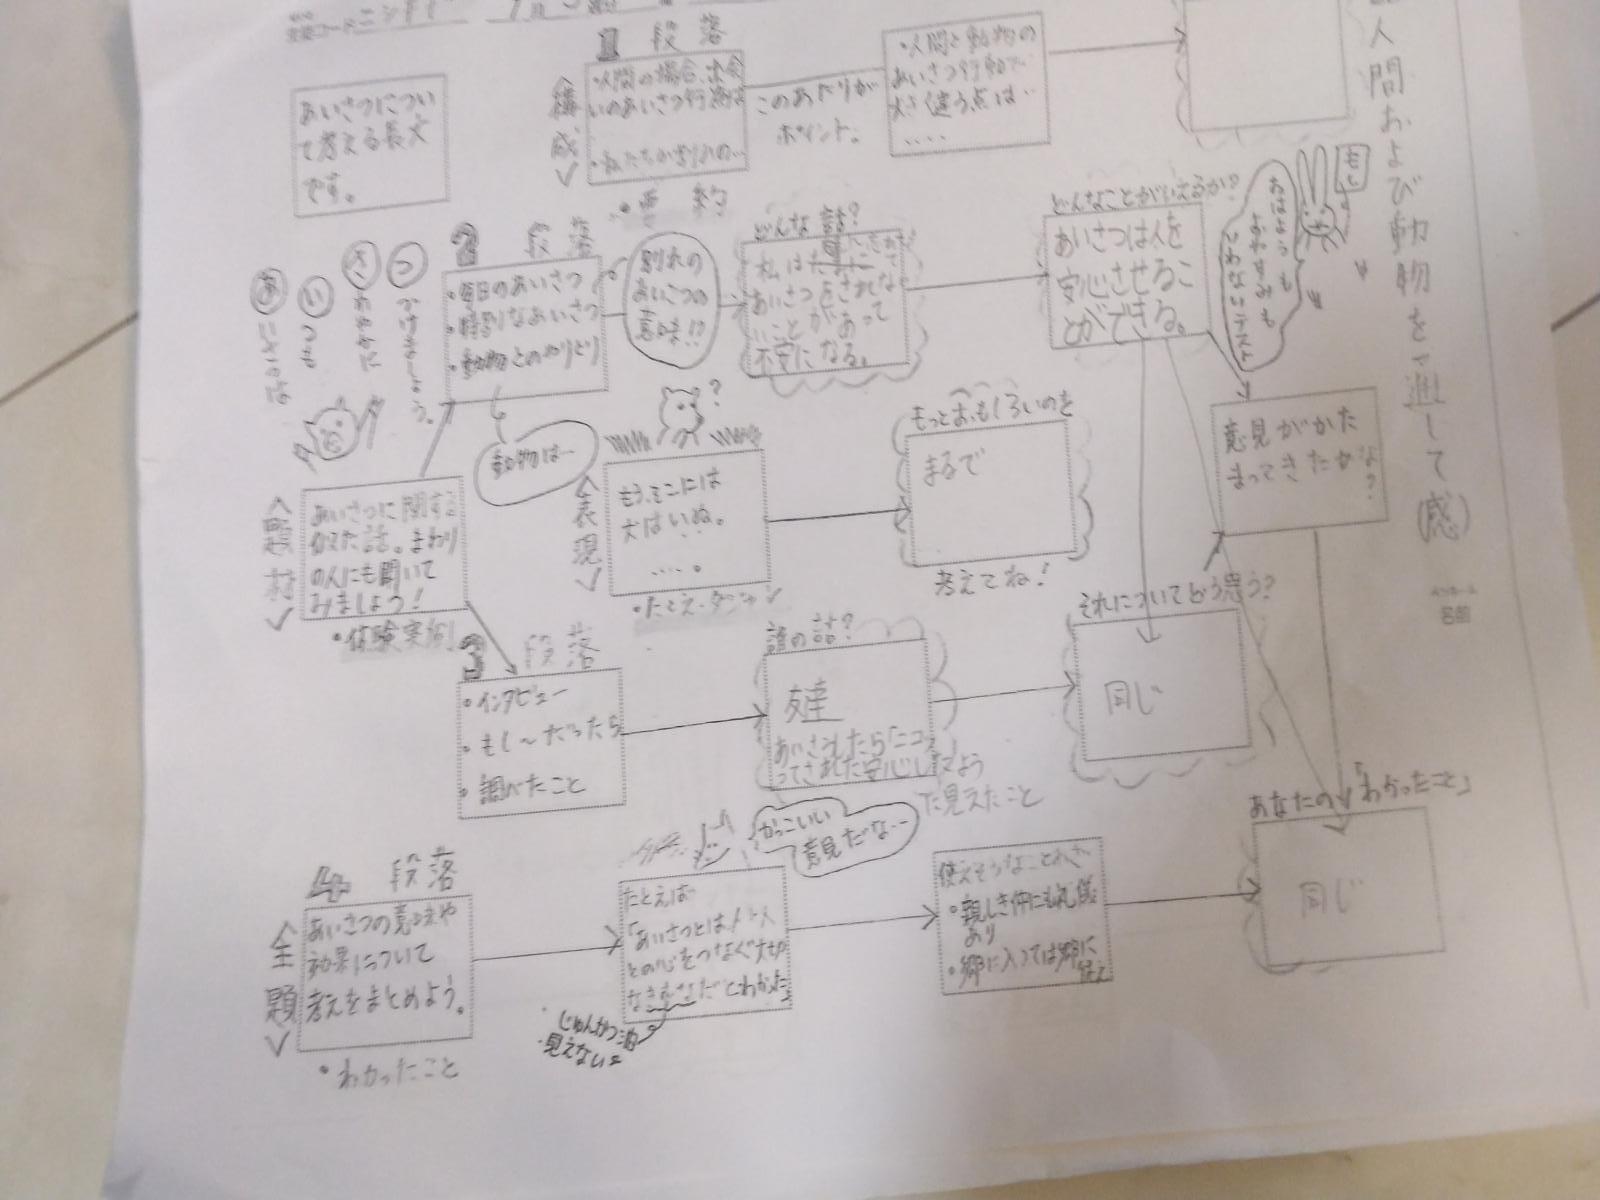 人間および動物を通して(感)
名前
あいさつについ
て考える長文
です。
1 段落
<構成>
・人間の場合、出会
いのあいさつ行動は
・私たちが別れの…
・要約
このあたりが
ポイント。
・人間と動物の
あいさつ行動で
大きく違う点は‥
‥‥
あ いさつは
い つも
さ わやかに
つ づけましょう。
2 段落
・毎日のあいさつ
・特別なあいさつ
・動物とのやりとり
別れの
あいさつの
意味!?
動物は…
どんな話?
私は
あいさつをされな
いことがあって
不安になる。
どんなことがいえるか?
あいさつは人を
安心させるこ
とができる。
もし
おはようも
おやすみも
いわないテスト
意見がかた
まってきたかな?
<題材>
あいさつに関する
似た話。まわり
の人にも聞いて
みましょう!
・体験実例
<表現>
もう、そこには
犬はいぬ。
‥‥。
・たとえ・ダジャレ
もっとおもしろいのを
まるで
考えてね!
3 段落
・インタビュー
・もし〜だったら
・調べたこと
誰の話?
友達
あいさつしたら「ニコッ
ってされた安心したよう
に見えたこと
それについてどう思う?
同じ
4 段落
<主題>
あいさつの意味や
効果について
考えをまとめよう。
・わかったこと
かっこいい
意見だな…
たとえば
「あいさつとは人と人
との心をつなぐ大切
なきずなだとわかった」
じゅんかつ油
見えない
使えそうなことわざ
・親しき仲にも礼儀
あり
・郷に入っては郷に
従え
あなたの「わかったこと」
同じ